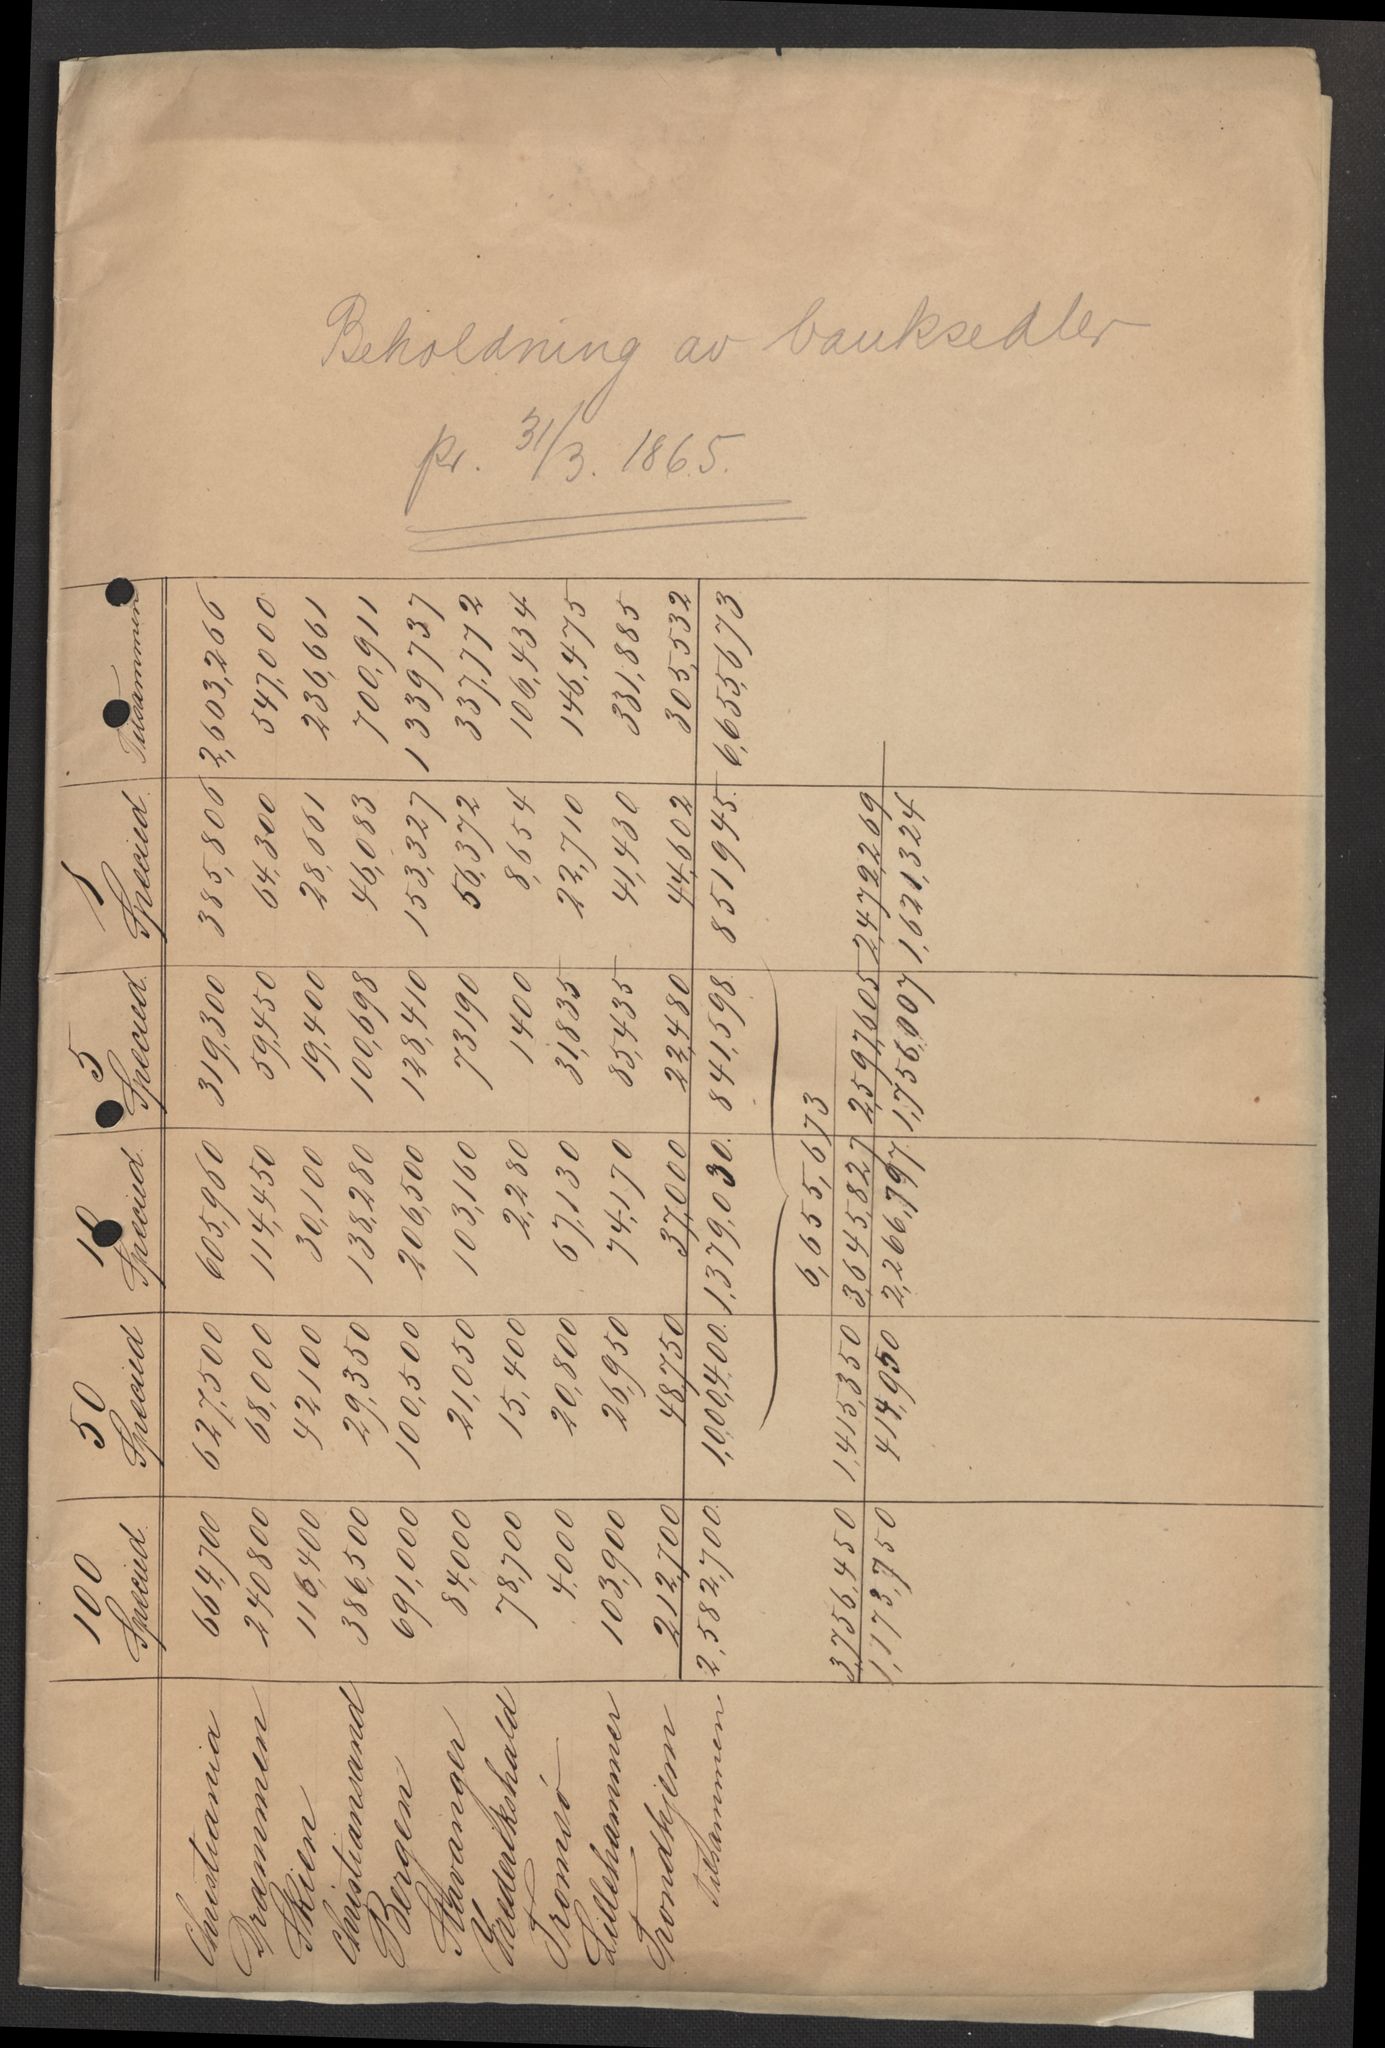 Beholdning av banksedler
pr. 31/3. 1865.
100 50 10 5 1
Specied. Specied Specied. Specied. Specied. Tilsammen
Christiania 664,700 627,500 605,960 319,300 385,806 2,603,266
Drammen 240800 68,000 114,450 59,450 64,300 547,000
Skien 116,400 42,100 30,100 19,400 28,661 236,661
Christiansand 386,500 29,350 138,280 100,698 46,083 700,911
Bergen 691,000 100,500 206,500 128,410 153,327 1339737
Stavanger 84,000 21,050 103,160 73190 56,372 337,772
Frederikshald 78,700 15,400 2,280 1400 8,654 106,434
Tromsö 4,000 20,800 67,130 31,835 22,710 146,475
Lillehammer 103,900 26,950 74,170 85,435 41,430 331,885
Trondhjem 212,700 48,750 37,000 22,480 44,602 305,532
Tilsammen 2,582,700. 1,000,400. 1,379,030. 841,598. 851945. 6,655,673
6,655,673
3,756,450 1,415,350 3,645,827 2,597,605 2,472,269
1,173,750 414,950 2,266,797. 1,756,007 1,621,324